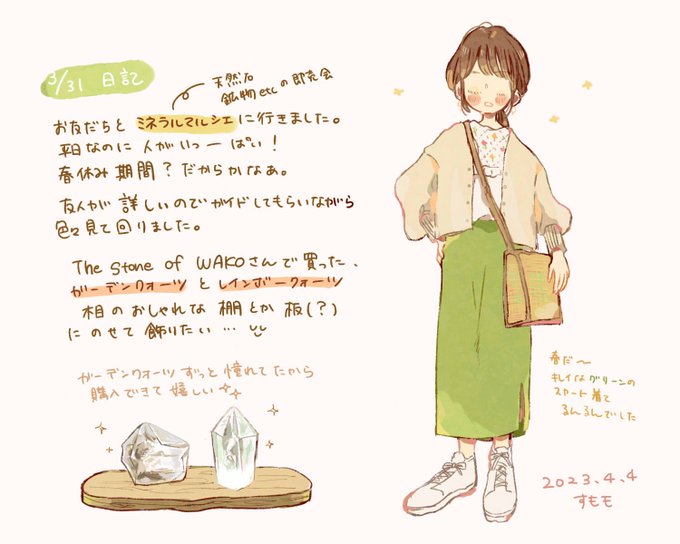 3/31 日記
天然石
鉱物etcの即売会
お友だちと ミネラルマルシェに行きました。
平日なのに 人がいっーぱい!
春休み期間?だからかなぁ。
友人が 詳しいのでガイドしてもらいながら
色々見て回りました。
The Stone of WAKOさんで買った、
ガーデンクォーツ と レインボークォーツ
木目のおしゃれな 棚とか 板(?)
にのせて飾りたい…
ガーデンクォーツ ずっと憧れてたから
購入できて嬉しい
春だ〜
キレイなグリーンの
スカート着て
るんるんでした
2023.4.4
すもも